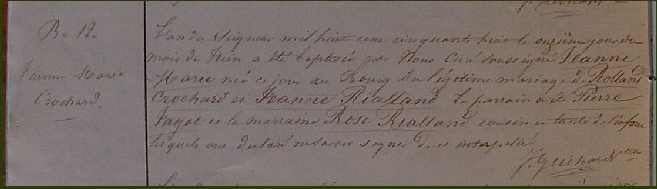 B. 12.
Jeanne Marie
Crochard.
L'an du Seigneur mil huit cent cinquante huit le onzième jour du
mois de Juin a été baptisée par Nous Curé soussigné Jeanne
Marie née ce jour au Bourg du légitime mariage de Rolland
Crochard et Jeanne Rialland. Le parrain a été Pierre
et la marraine Rose Rialland cousin et tante de l'enfant
lesquels ont déclaré ne savoir signer de ce interpellés.
J. Guihard